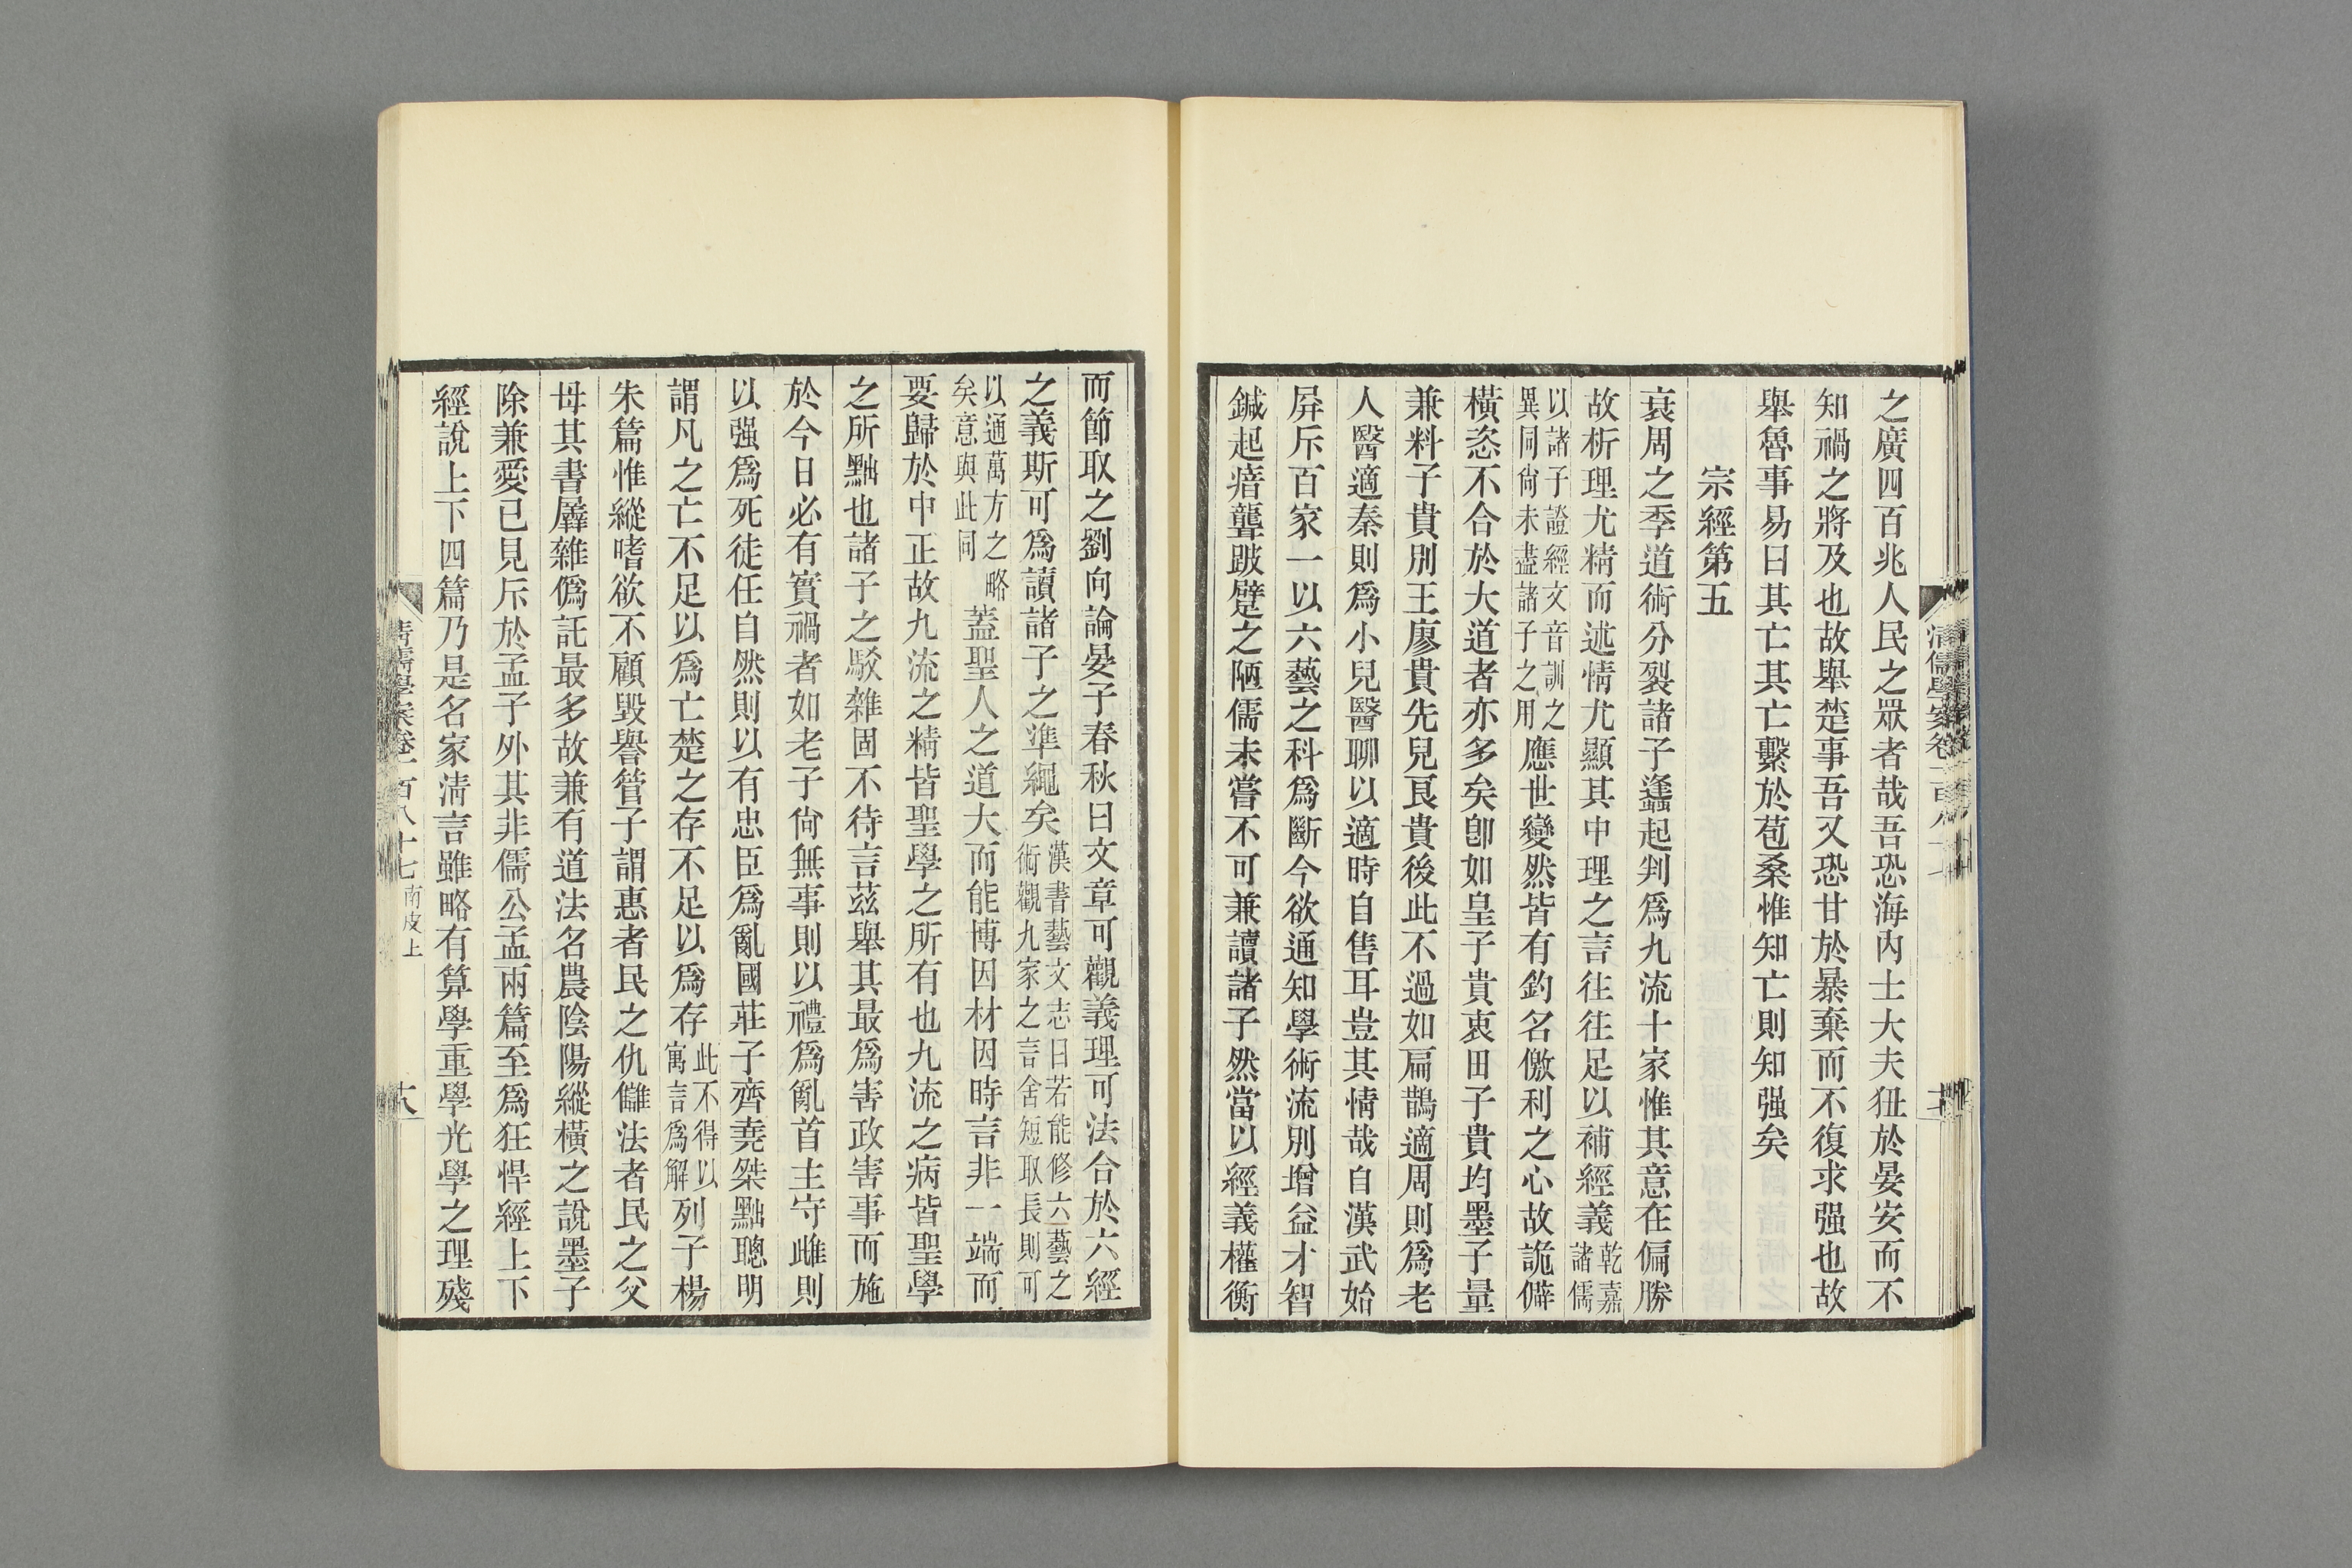 之廣四百兆人民之眾者哉吾恐海內士大夫狃於晏安而不
知禍之將及也故舉楚事吾又恐甘於暴棄而不復求强也故
舉魯事易曰其亡其亡繫於苞桑惟知亡則知强矣
宗經第五
衰周之季道術分裂諸子蠭起判爲九流十家惟其意在偏勝
故析理尤精而述情尤顯其中理之言往往足以補經義乾嘉諸儒
以諸子證經文音訓之異同尙未盡諸子之用應世變然皆有釣名儌利之心故詭僻
橫恣不合於大道者亦多矣卽如皇子貴衷田子貴均墨子量
兼料子貴別王廖貴先兒良貴後此不過如扁鵲適周則爲老
人醫適秦則爲小兒醫聊以適時自售耳豈其情哉自漢武始
屏斥百家一以六藝之科爲斷今欲通知學術流別增益才智
鍼起瘖聾跛躄之陋儒未嘗不可兼讀諸子然當以經義權衡
而節取之劉向論晏子春秋曰文章可觀義理可法合於六經
之義斯可爲讀諸子之準繩矣漢書藝文志曰若能修六藝之術觀九家之言舍短取長則可
以通萬方之略矣意與此同蓋聖人之道大而能博因材因時言非一端而
要歸於中正故九流之精皆聖學之所有也九流之病皆聖學
之所黜也諸子之駁雜固不待言茲舉其最爲害政害事而施
於今日必有實禍者如老子尙無事則以禮爲亂首主守雌則
以强爲死徒任自然則以有忠臣爲亂國莊子齊堯桀黜聰明
謂凡之亡不足以爲亡楚之存不足以爲存此不得以寓言爲解列子楊
朱篇惟縱嗜欲不顧毀譽管子謂惠者民之仇讎法者民之父
母其書羼雜僞託最多故兼有道法名農陰陽縱橫之說墨子
除兼愛已見斥於孟子外其非儒公孟兩篇至爲狂悍經上下
經說上下四篇乃是名家淸言雖略有算學重學光學之理殘
清儒學案卷一百八十七 南皮上
十八